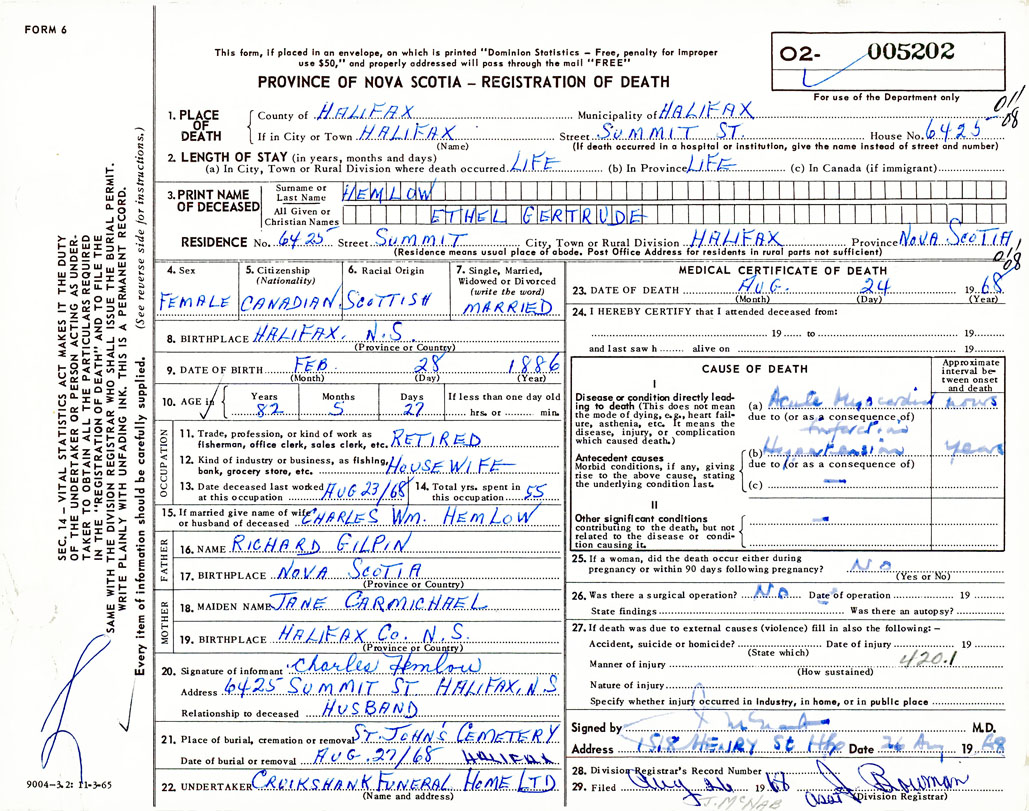 FORM 6
This form, if placed in an envelope, on which is printed "Dominion Statistics – Free, penalty for improper
use $50," and properly addressed will pass through the mail "FREE"
O2- 005202
For use of the Department only
PROVINCE OF NOVA SCOTIA – REGISTRATION OF DEATH
011
08
1. PLACE OF DEATH
County of HALIFAX Municipality of HALIFAX
If in City or Town HALIFAX Street SUMMIT ST. House No. 6425
(Name) (If death occurred in a hospital or institution, give the name instead of street and number)
2. LENGTH OF STAY (in years, months and days)
(a) In City, Town or Rural Division where death occurred LIFE (b) In Province LIFE (c) In Canada (if immigrant)
3. PRINT NAME OF DECEASED
Surname or Last Name HEMLOW
All Given or Christian Names ETHEL GERTRUDE
RESIDENCE No. 6425 Street SUMMIT City, Town or Rural Division HALIFAX Province NOVA SCOTIA
(Residence means usual place of abode. Post Office Address for residents in rural parts not sufficient)
011
08
4. Sex
FEMALE
5. Citizenship
(Nationality)
CANADIAN
6. Racial Origin
SCOTTISH
7. Single, Married,
Widowed or Divorced
(write the word)
MARRIED
8. BIRTHPLACE HALIFAX. N.S.
(Province or Country)
9. DATE OF BIRTH FEB. 28 1886
(Month) (Day) (Year)
10. AGE in
Years Months Days If less than one day old
82 5 27 hrs. or min.
OCCUPATION
11. Trade, profession, or kind of work as
fisherman, office clerk, sales clerk, etc. RETIRED
12. Kind of industry or business, as fishing,
bank, grocery store, etc. HOUSEWIFE
13. Date deceased last worked
at this occupation AUG 23/68
14. Total yrs. spent in
this occupation 55
15. If married give name of wife
or husband of deceased CHARLES WM. HEMLOW
FATHER
16. NAME RICHARD GILPIN
17. BIRTHPLACE NOVA SCOTIA
(Province or Country)
MOTHER
18. MAIDEN NAME JANE CARMICHAEL
19. BIRTHPLACE HALIFAX Co. N.S.
(Province or Country)
20. Signature of informant Charles Hemlow
Address 6425 SUMMIT ST HALIFAX, N.S
Relationship to deceased HUSBAND
21. Place of burial, cremation or removal ST. JOHN'S CEMETERY
Date of burial or removal AUG. 27/68 HALIFAX
22. UNDERTAKER CRUIKSHANK FUNERAL HOME LTD
(Name and address)
MEDICAL CERTIFICATE OF DEATH
23. DATE OF DEATH AUG. 24 1968
(Month) (Day) (Year)
24. I HEREBY CERTIFY that I attended deceased from:
19 to 19
and last saw h alive on 19
CAUSE OF DEATH
Approximate
interval be-
tween onset
and death
I
Disease or condition directly lead-
ing to death (This does not mean
the mode of dying, e.g., heart fail-
ure, asthenia, etc. It means the
disease, injury, or complication
which caused death.)
(a) Acute Myocardial hours
due to (or as a consequence of)
Infarction
Antecedent causes
Morbid conditions, if any, giving
rise to the above cause, stating
the underlying condition last.
(b) Hypertension years
due to (or as a consequence of)
(c) –
II
Other significant conditions
contributing to the death, but not
related to the disease or condi-
tion causing it.
–
–
25. If a woman, did the death occur either during
pregnancy or within 90 days following pregnancy? NO
(Yes or No)
26. Was there a surgical operation? NO Date of operation 19
State findings Was there an autopsy?
27. If death was due to external causes (violence) fill in also the following: –
Accident, suicide or homicide? Date of injury 19
(State which) 420.1
Manner of injury
(How sustained)
Nature of injury
Specify whether injury occurred in industry, in home, or in public place
Signed by M.D.
Address 1518 HENRY St Hfx Date 26 Aug 1968
28. Division Registrar's Record Number
29. Filed Aug 26 1968 Asst J. Bowman
(Division Registrar)
J. MCNAB
SEC. 14 – VITAL STATISTICS ACT MAKES IT THE DUTY
OF THE UNDERTAKER OR PERSON ACTING AS UNDER-
TAKER TO OBTAIN ALL THE PARTICULARS REQUIRED
IN THE "REGISTRATION OF DEATH" AND TO FILE THE
SAME WITH THE DIVISION REGISTRAR WHO SHALL ISSUE THE BURIAL PERMIT.
WRITE PLAINLY WITH UNFADING INK. THIS IS A PERMANENT RECORD.
Every item of information should be carefully supplied. (See reverse side for instructions.)
9004-3.2: 11-3-65